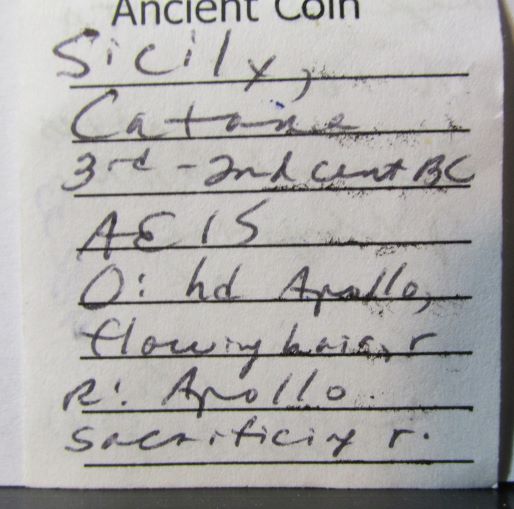 Ancient Coin
Sicily,
Catane
3rd - 2nd cent BC
AE 15
O: hd Apollo,
flowing hair, r
R: Apollo.
sacrificing r.